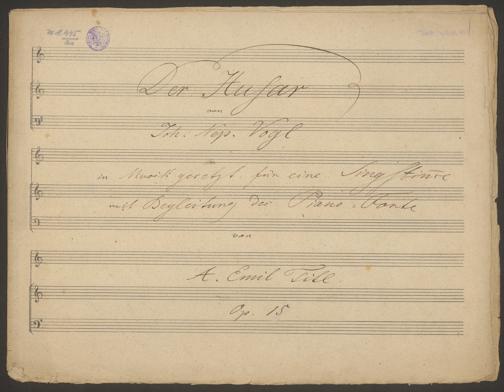 Der Husar
von
Joh. Nep. Vogl
in Musik gesetzt für eine Singstim̅e
mit Begleitung des Piano-Forte
von
A. Emil Titl.
Op. 15